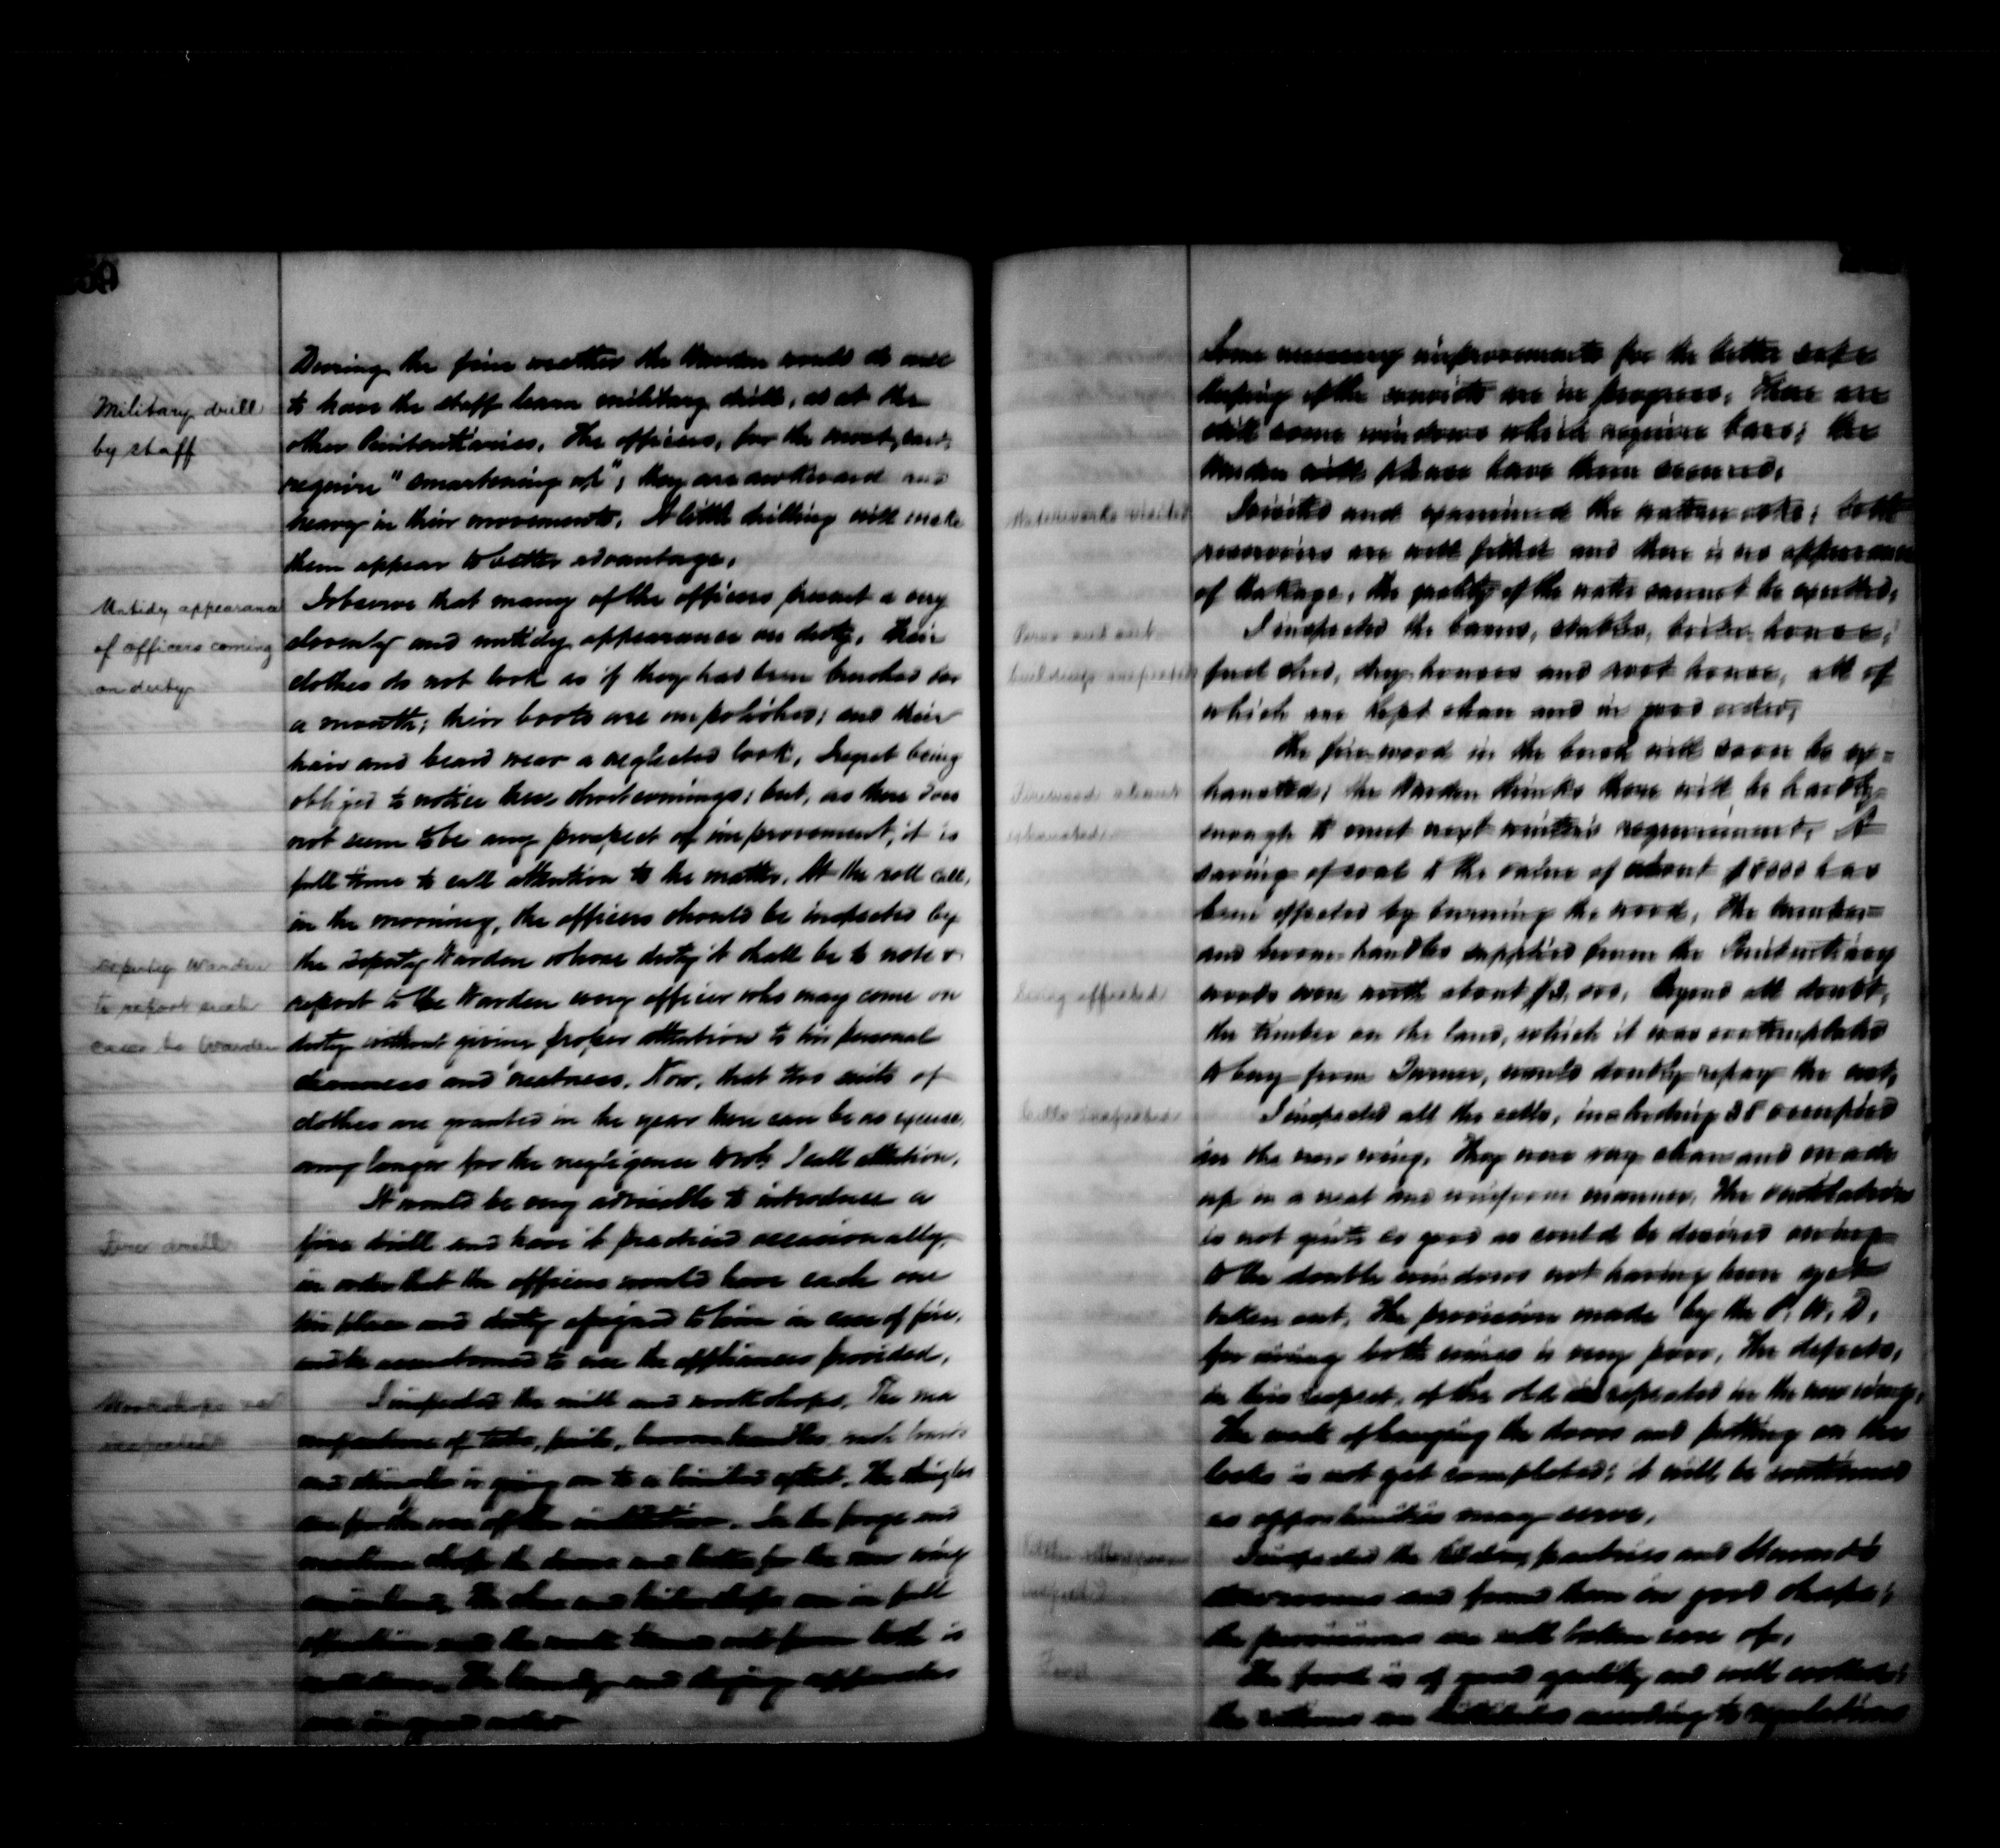 Military drill
by staff
During the fine weather the Warden would do well
to have the staff learn military drill, as at the
other Penitentiaries. The officers, for the most part,
require "smartening up"; they are awkward and
heavy in their movements. A little drilling will make
them appear to better advantage.
Untidy appearance
of officers coming
on duty
I observe that many of the officers present a very
slovenly and untidy appearance on duty. Their
clothes do not look as if they had been brushed for
a month; their boots are unpolished; and their
hair and beard wear a neglected look. I regret being
obliged to notice these shortcomings; but, as there does
not seem to be any prospect of improvement, it is
full time to call attention to the matter. At the roll call,
in the morning, the officers should be inspected by
Deputy Warden
to report such
cases to Warden
the Deputy Warden whose duty it shall be to note &
report to the Warden every officer who may come on
duty without giving proper attention to his personal
cleanness and neatness. Now, that two suits of
clothes are granted in the year there can be no excuse
any longer for the negligence to wh. I call attention.
Fire drill
It would be very advisable to introduce a
fire drill and have it practised occasionally,
in order that the officers would have each one
his place and duty assigned to him in case of fire,
and be accustomed to use the appliances provided.
Workshops
inspected
I inspected the mill and workshops. The ma
nufacture of tubs, pails, broom handles,
and shingles is going on to a limited extent. The shingles
are for the use of the institution. In the forge and
machine shop the doors and bolts for the new wing
The shoe and tailor shops are in full
operation and the work turned out from both is
well done. The laundry and drying apparatus
are in good order.
Some necessary improvements for the better safe
keeping of the convicts are in progress. There are
still some windows which require bars; the
Warden will please have them secured.
Waterworks visited
I visited and examined the waterworks; both
reservoirs are well filled and there is no appearance
of leakage. The quality of the water cannot be excelled.
Farm and out
buildings inspected
I inspected the barns, stables, boiler house,
fuel shed, dry houses and root house, all of
which are kept clean and in good order.
Firewood almost
exhausted
The firewood in the bush will soon be ex-
hausted; the Warden thinks there will be hardly
enough to meet next winter's requirement. A
saving of coal to the value of about $8000 has
been effected by burning the wood. The timber
and broom-handles supplied from the Penitentiary
Saving effected
woods were worth about $2,000. Beyond all doubt,
the timber on the land, which it was contemplated
to buy from Turner, would doubly repay the cost.
Cells inspected
I inspected all the cells, including 38 occupied
in the new wing. They were very clean and made
up in a neat and uniform manner. The ventilation
is not quite so good as could be desired owing
to the double windows not having been yet
taken out. The provision made by the P. W. D.
for airing both wings is very poor. The defects,
in this respect, of the old are repeated in the new wing.
The work of hanging the doors and putting on the
locks is not yet completed; it will be continued
as opportunities may serve.
inspected
I inspected the kitchen, pantries and Steward's
storerooms and found them in good shape;
the provisions are well taken care of.
Food
The food is of good quality and well cooked;
the rations are distributed according to regulations